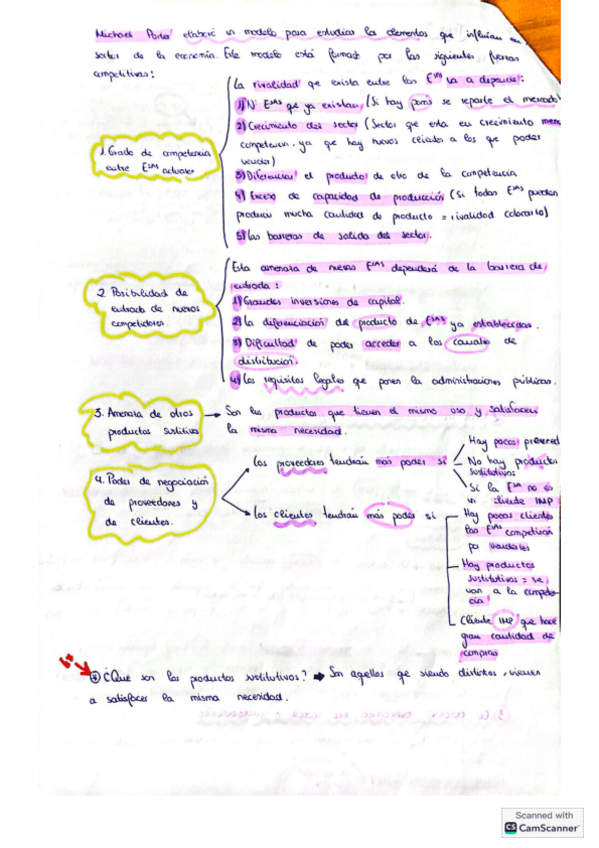 Michael Porter elaboró un modelo para estudiar los elementos que influían en
sector de la economía. Este modelo está formado por las siguientes fuerzas
competitivas:
1. Grado de competencia
entre Esas actuales
La rivalidad que exista entre las Esas va a depender:
1) Nº Esas que ya existan, (Si hay pocos se reparte el mercado)
2) Crecimiento del sector (Sector que esta en crecimiento menos
competencia, ya que hay nuevos clientes a los que poder
vender)
3) Diferenciar el producto de otro de la competencia
4) Exceso de capacidad de producción (Si todas Esas pueden
producir mucha cantidad de producto = rivalidad
5) Las barreras de salida del sector.
2. Posibilidad de
entrada de nuevos
competidores.
Esta amenaza de nuevas Esas dependerá de la barrera de
entrada:
1) Grandes inversiones de capital.
2) La diferenciación del producto de Esas ya establecidas.
3) Dificultad de poder acceder a los canales de
distribución.
4) Los requisitos legales que ponen la administraciones públicas.
3. Amenaza de otros
productos sustitivos
→ Son los productos que tienen el mismo uso y satisfacen
la misma necesidad.
4. Poder de negociación
de proveedores y
de clientes.
Los proveedores tendrán más poder si
Hay pocos proveed
No hay productos
sustitutivos
Si la Esa no es
un cliente IMP
Los clientes tendrán más poder si
Hay pocos clientes
las Esas competirán
por venderles
Hay productos
sustitutivos = se
van a la compete-
cia!
Cliente IMP que hace
gran cantidad de
compras
¿Que son los productos sustitutivos? → Son aquellos que siendo distintos, vienen
a satisfacer la misma necesidad.
Scanned with
CS CamScanner